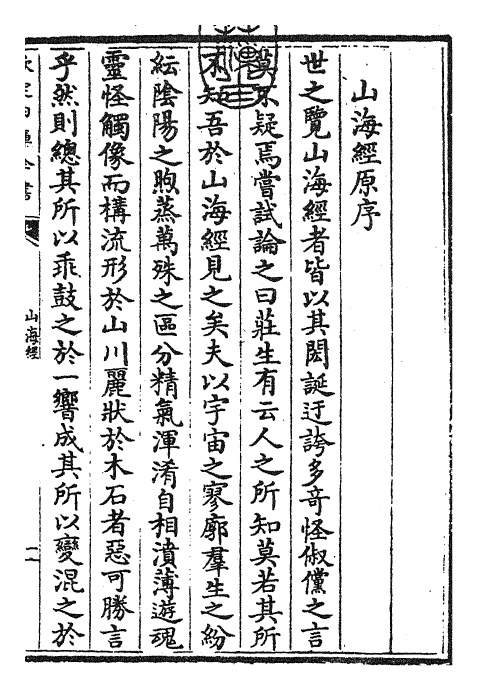 山海經原序
世之覽山海經者皆以其閎誕迂誇多奇怪俶儻之言
莫不疑焉嘗試論之曰莊生有云人之所知莫若其所
不知吾於山海經見之矣夫以宇宙之寥廓羣生之紛
紜陰陽之煦蒸萬殊之區分精氣渾淆自相濆薄遊魂
靈怪觸像而構流形於山川麗狀於木石者惡可勝言
乎然則總其所以乖鼓之於一響成其所以變混之於
山海經